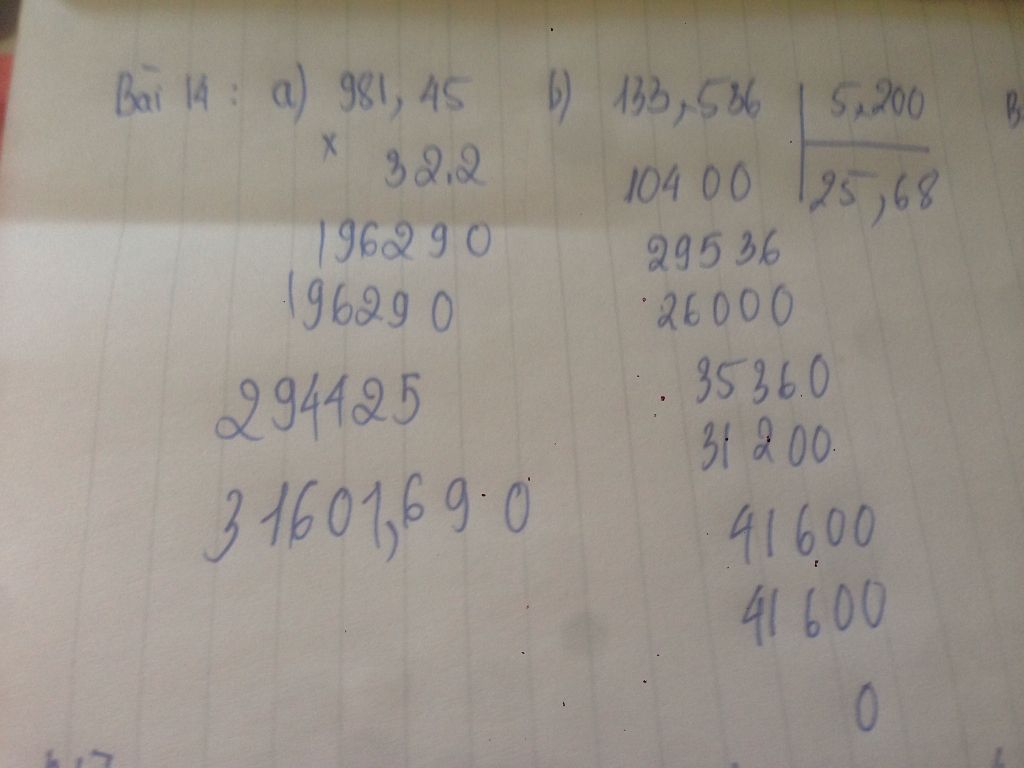 Bài 14 : a) 981,45
x
32,2
196290
196290
294425
31601,690
b) 133,536 5,200
10400 25,68
29536
26000
35360
31200
41600
41600
0
B